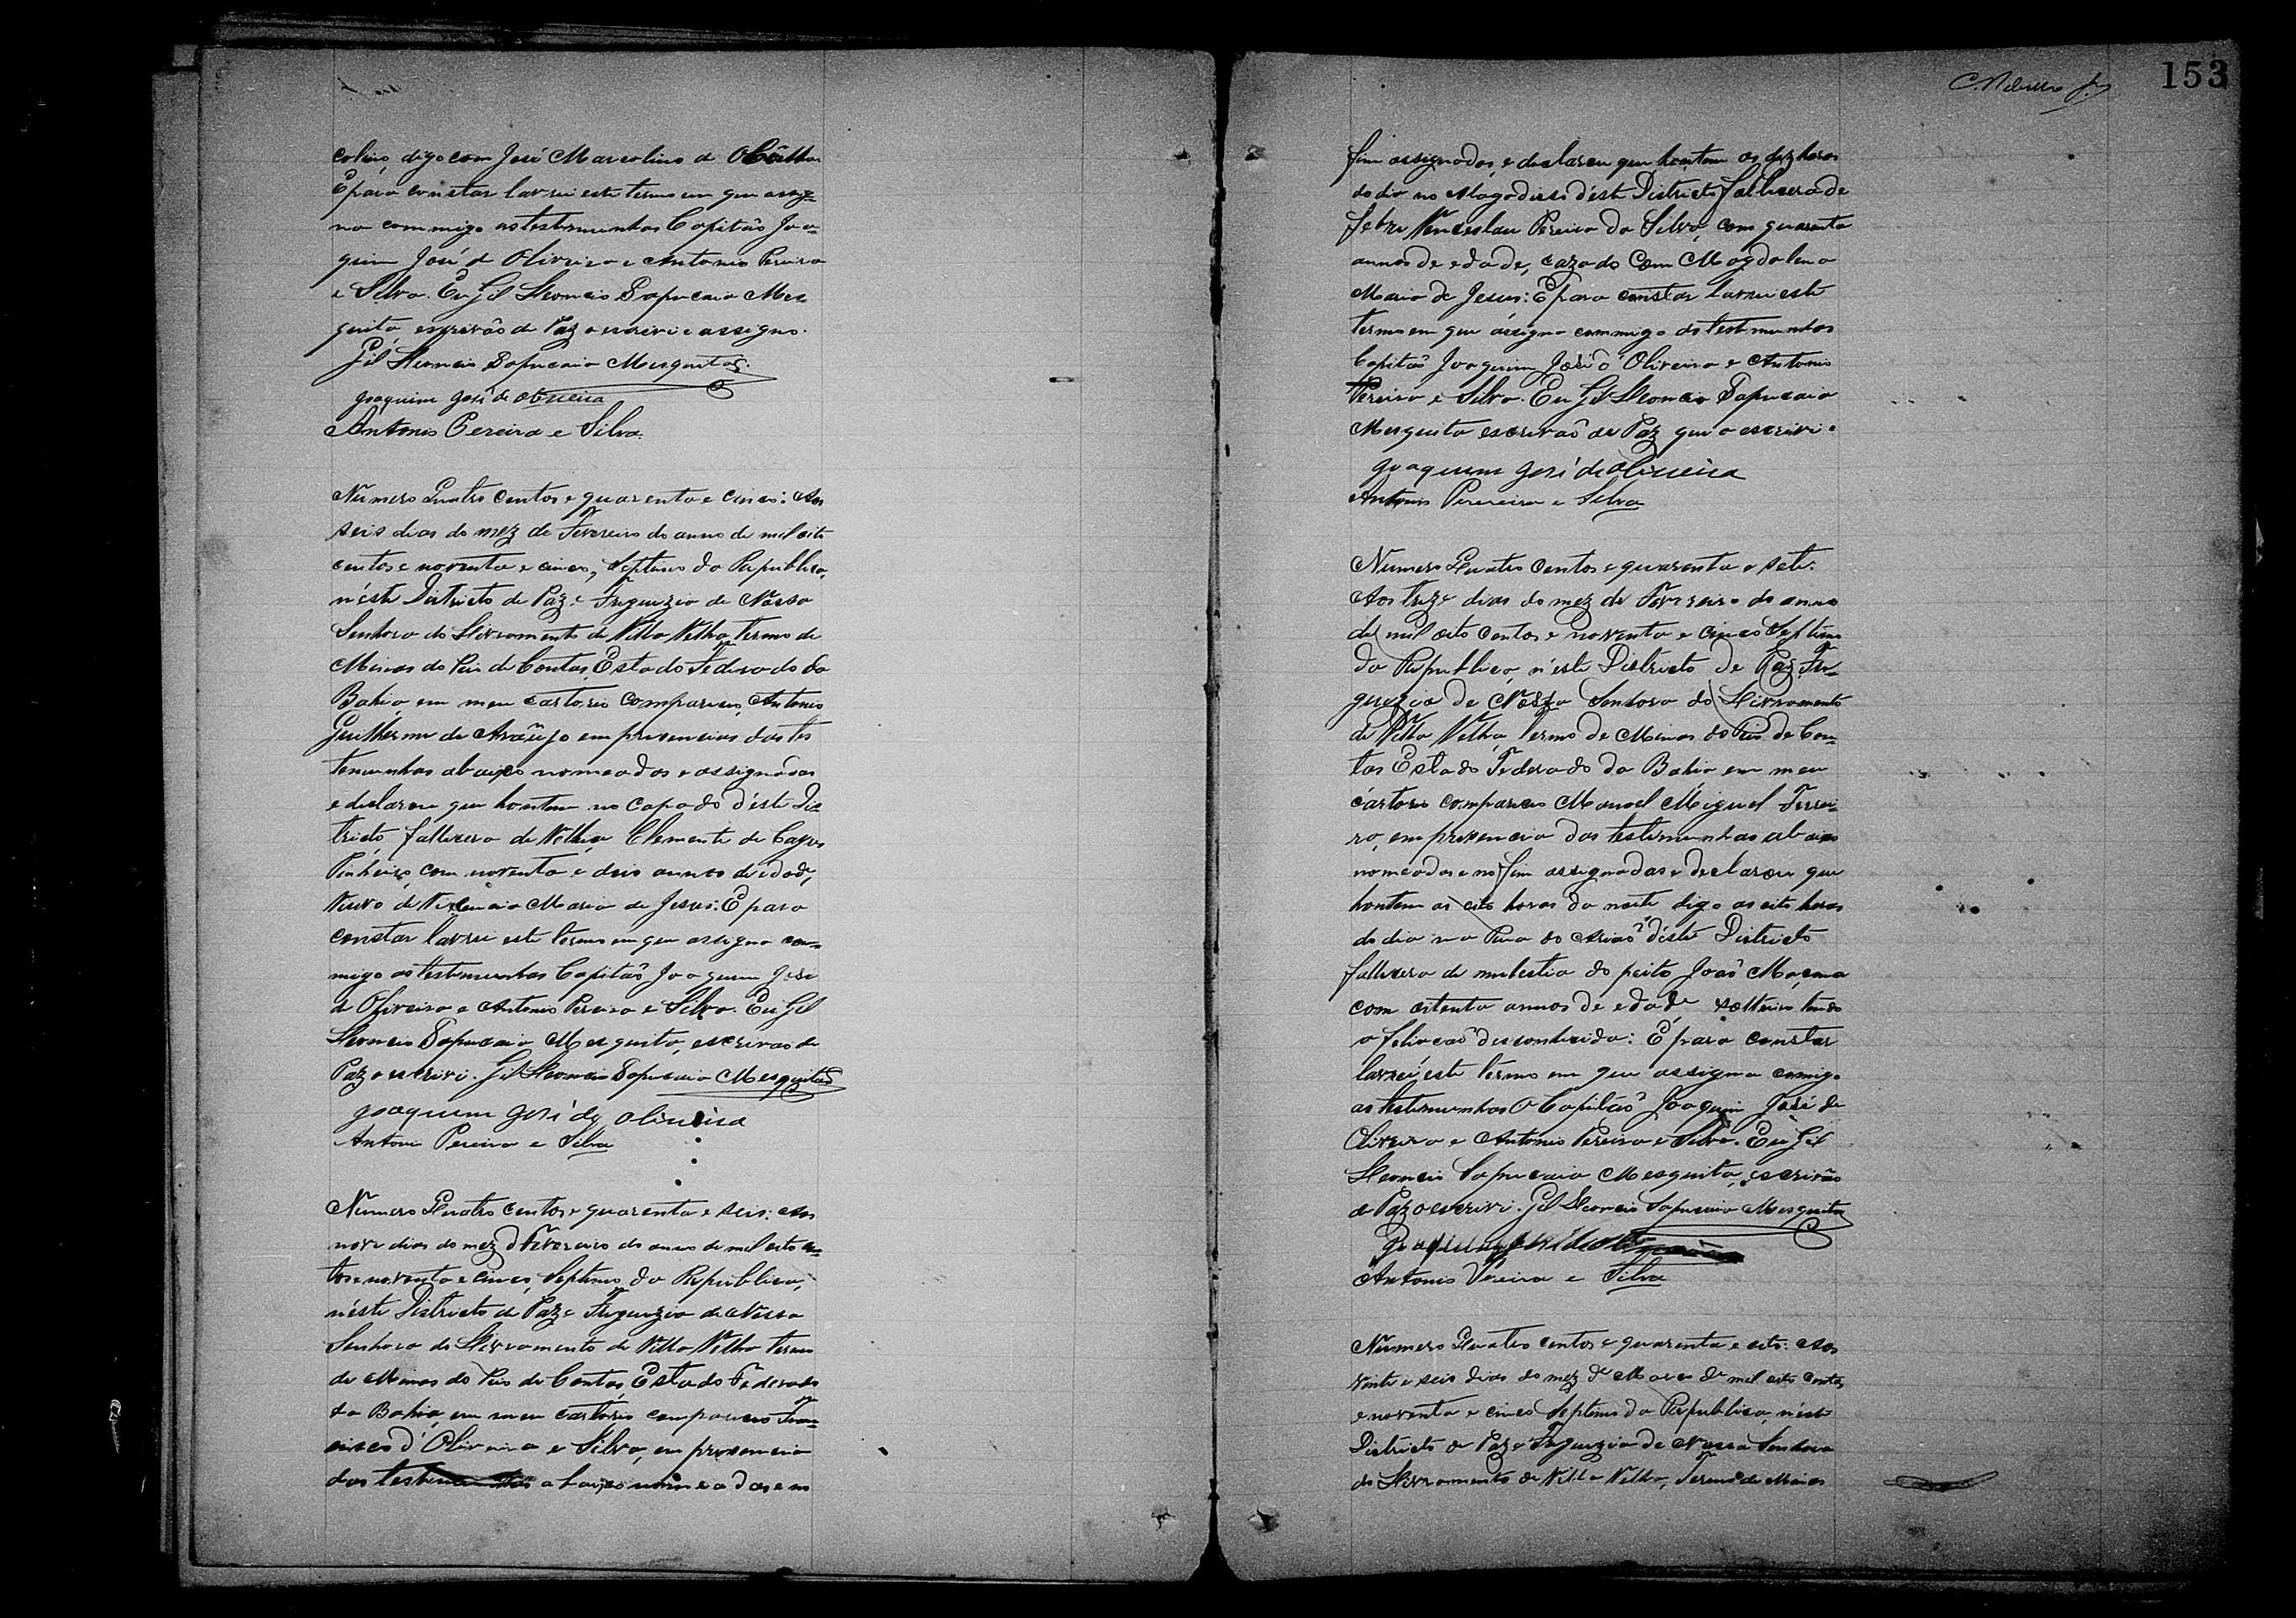 colino digo com José Marcolino de
E para constar lavrei este termo em que assig-
na commigo as testemunhas Capitão Joa-
quim José d'Oliveira e Antonio Pereira
e Silva. Eu Gil Leoncio Sapucaia Mes
quita escrivão de Paz o escrivi e assigno.
Gil Leoncio Sapucaia Mesquita.
Joaquim José de Oliveira
Antonio Pereira e Silva.
Numero Quatro centos e quarenta e cinco: Aos
seis dias do mez de Fevereiro do anno de mil oito
centos e noventa e cinco, Septimo da Republica,
n'este Districto de Paz e Freguezia de Nossa
Senhora do Livramento de Villa Velha Termo de
Minas do Rio de Contas, Estado Federado da
Bahia, em meu cartorio compareceu Antonio
Guilherme de Araujo em presencia das tes
temunhas abaixo nomeadas e assignadas
e declarou que hontem no Capado d'este Dis
tricto, fallecera de Velhice Clemente de
Pinheiro, com noventa e dois annos de idade,
Viuvo de Maria de Jesus: E para
constar lavrei este termo em que assigna com-
migo as testemunhas Capitão Joaquim José
d'Oliveira e Antonio Pereira e Silva. Eu Gil
Leoncio Sapucaia Mesquita, escrivão de
Paz o escrivi. Gil Leoncio Sapucaia Mesquita
Joaquim José de Oliveira
Antonio Pereira e Silva
Numero Quatro centos e quarenta e seis: Aos
nove dias do mez d Fevereiro do anno de mil oito cen-
tos e noventa e cinco, Septimo da Republica,
n'este Districto de Paz e Freguezia de Nossa
Senhora do Livramento de Villa Velha termo
de Minas do Rio de Contas, Estado Federado
da Bahia, em meu cartorio compareceu Fran-
cisco d'Oliveira e Silva, em presencia
das testemunhas abaixo nomeadas e no
153
fim assignados, e declarou que hontem as dez horas
do dia no Alagadisso d'este Districto fallecera de
febre Venceslau Pereira da Silva, com quarenta
annos de edade, cazado com Magdalena
Maria de Jesus: E para constar lavrei este
termo em que assigna commigo as testemunhas
Capitão Joaquim José d'Oliveira e Antonio
Pereira e Silva. Eu Gil Leoncio Sapucaia
Mesquita escrivão de Paz que o escrivi.
Joaquim José de Oliveira
Antonio Pereira e Silva
Numero Quatro centos e quarenta e sete:
Aos treze dias do mez de Fevereiro do anno
de mil oito centos e noventa e cinco Septimo
da Republica, n'este Districto de Paz, Fre-
guezia de Nossa Senhora do Livramento
de Villa Velha, Termo de Minas do Rio de Con-
tas Estado Federado da Bahia em meu
cartorio compareceu Manoel Miguel Ferrei-
ro, em presencia das testemunhas abaixo
nomeadas e no fim assignadas e declarou que
hontem as oito horas da noite digo as oito horas
do dia na d'este Districto
fallecera de mulestia do peito João
com oitenta annos de edade solteiro tendo
a feliação desconhecida: E para constar
lavrei este termo em que assigna comigo
as testemunhas o Capitão Joaquim José de
Oliveira e Antonio Pereira e Silva. Eu Gil
Leoncio Sapucaia Mesquita, escrivão
de Paz o escrivi. Gil Leoncio Sapucaia Mesquita
Joaquim José de Oliveira
Antonio Pereira e Silva
Numero Quatro centos e quarenta e oito: Aos
vinte e seis dias do mez de Março de mil oito centos
e noventa e cinco Septimo da Republica, n'este
Districto de Paz e Freguezia de Nossa Senhora
do Livramento de Villa Velha, Termo de Minas